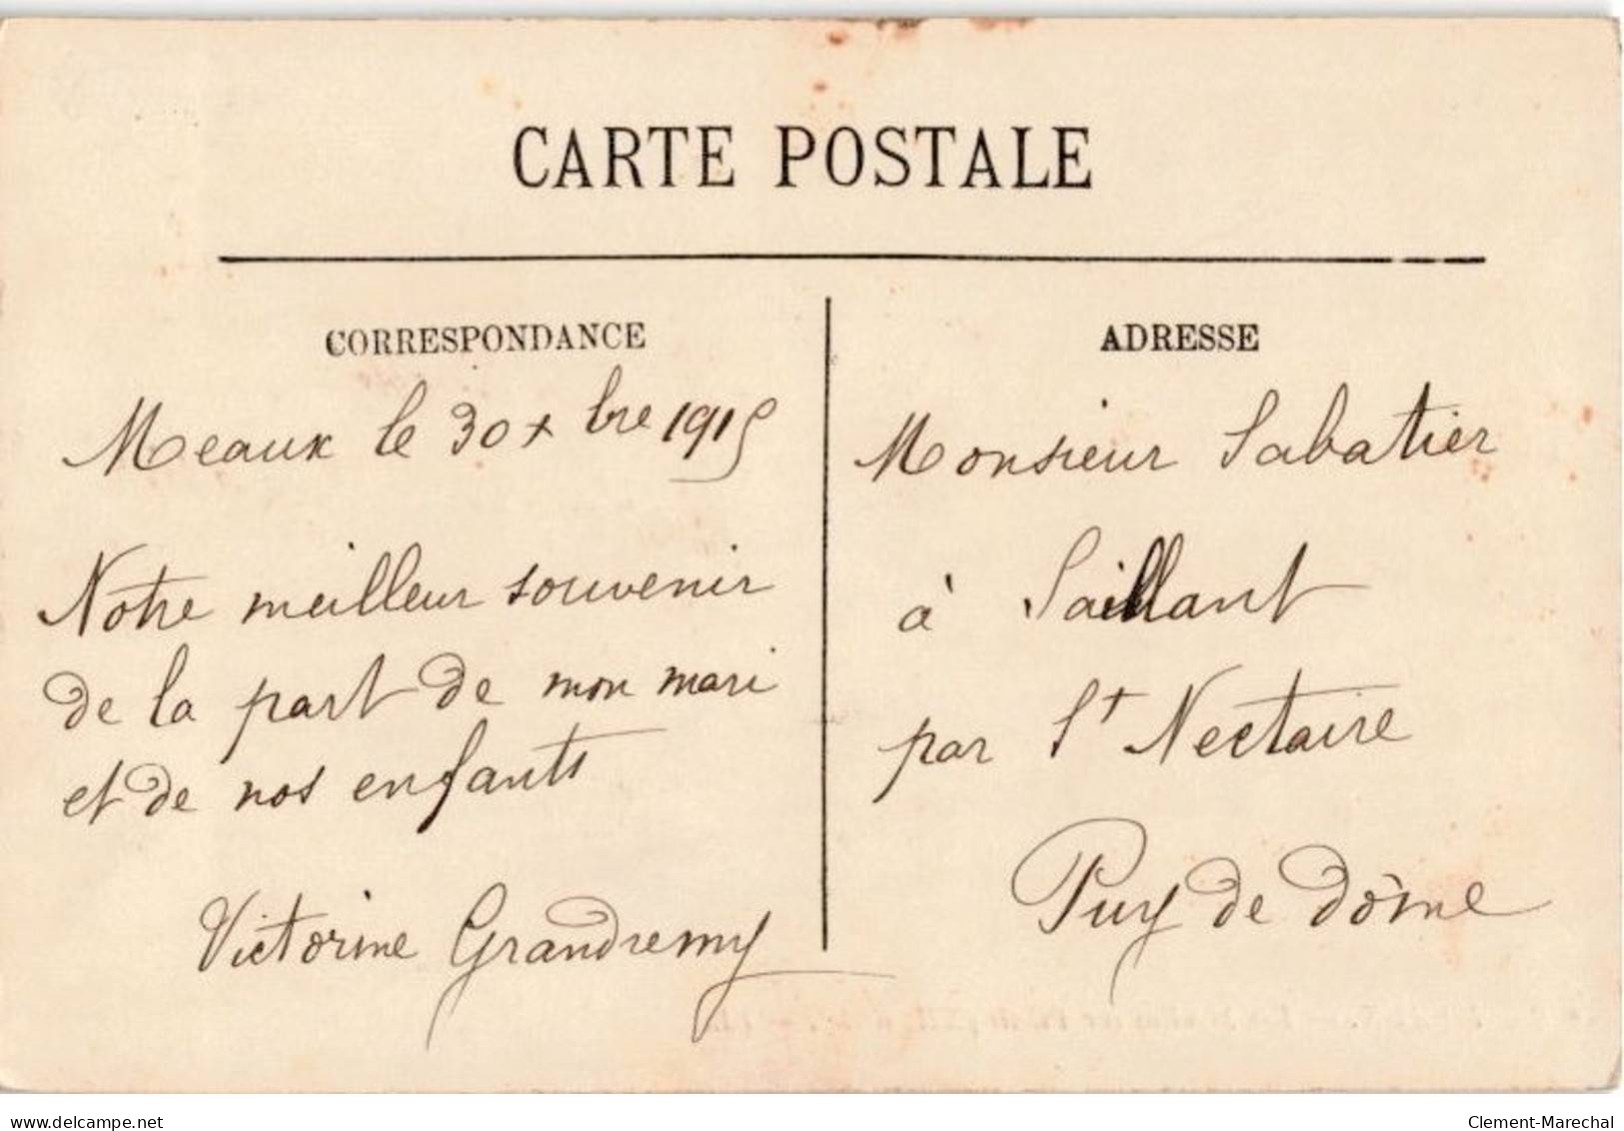 CARTE POSTALE
CORRESPONDANCE
Meaux le 30 xbre 1915
Notre meilleur souvenir
de la part de mon mari
et de nos enfants
Victorine Grandremy
ADRESSE
Monsieur Sabatier
à Saillant
par St Nectaire
Puy de Dôme
www.delcampe.net
Clement-Marechal